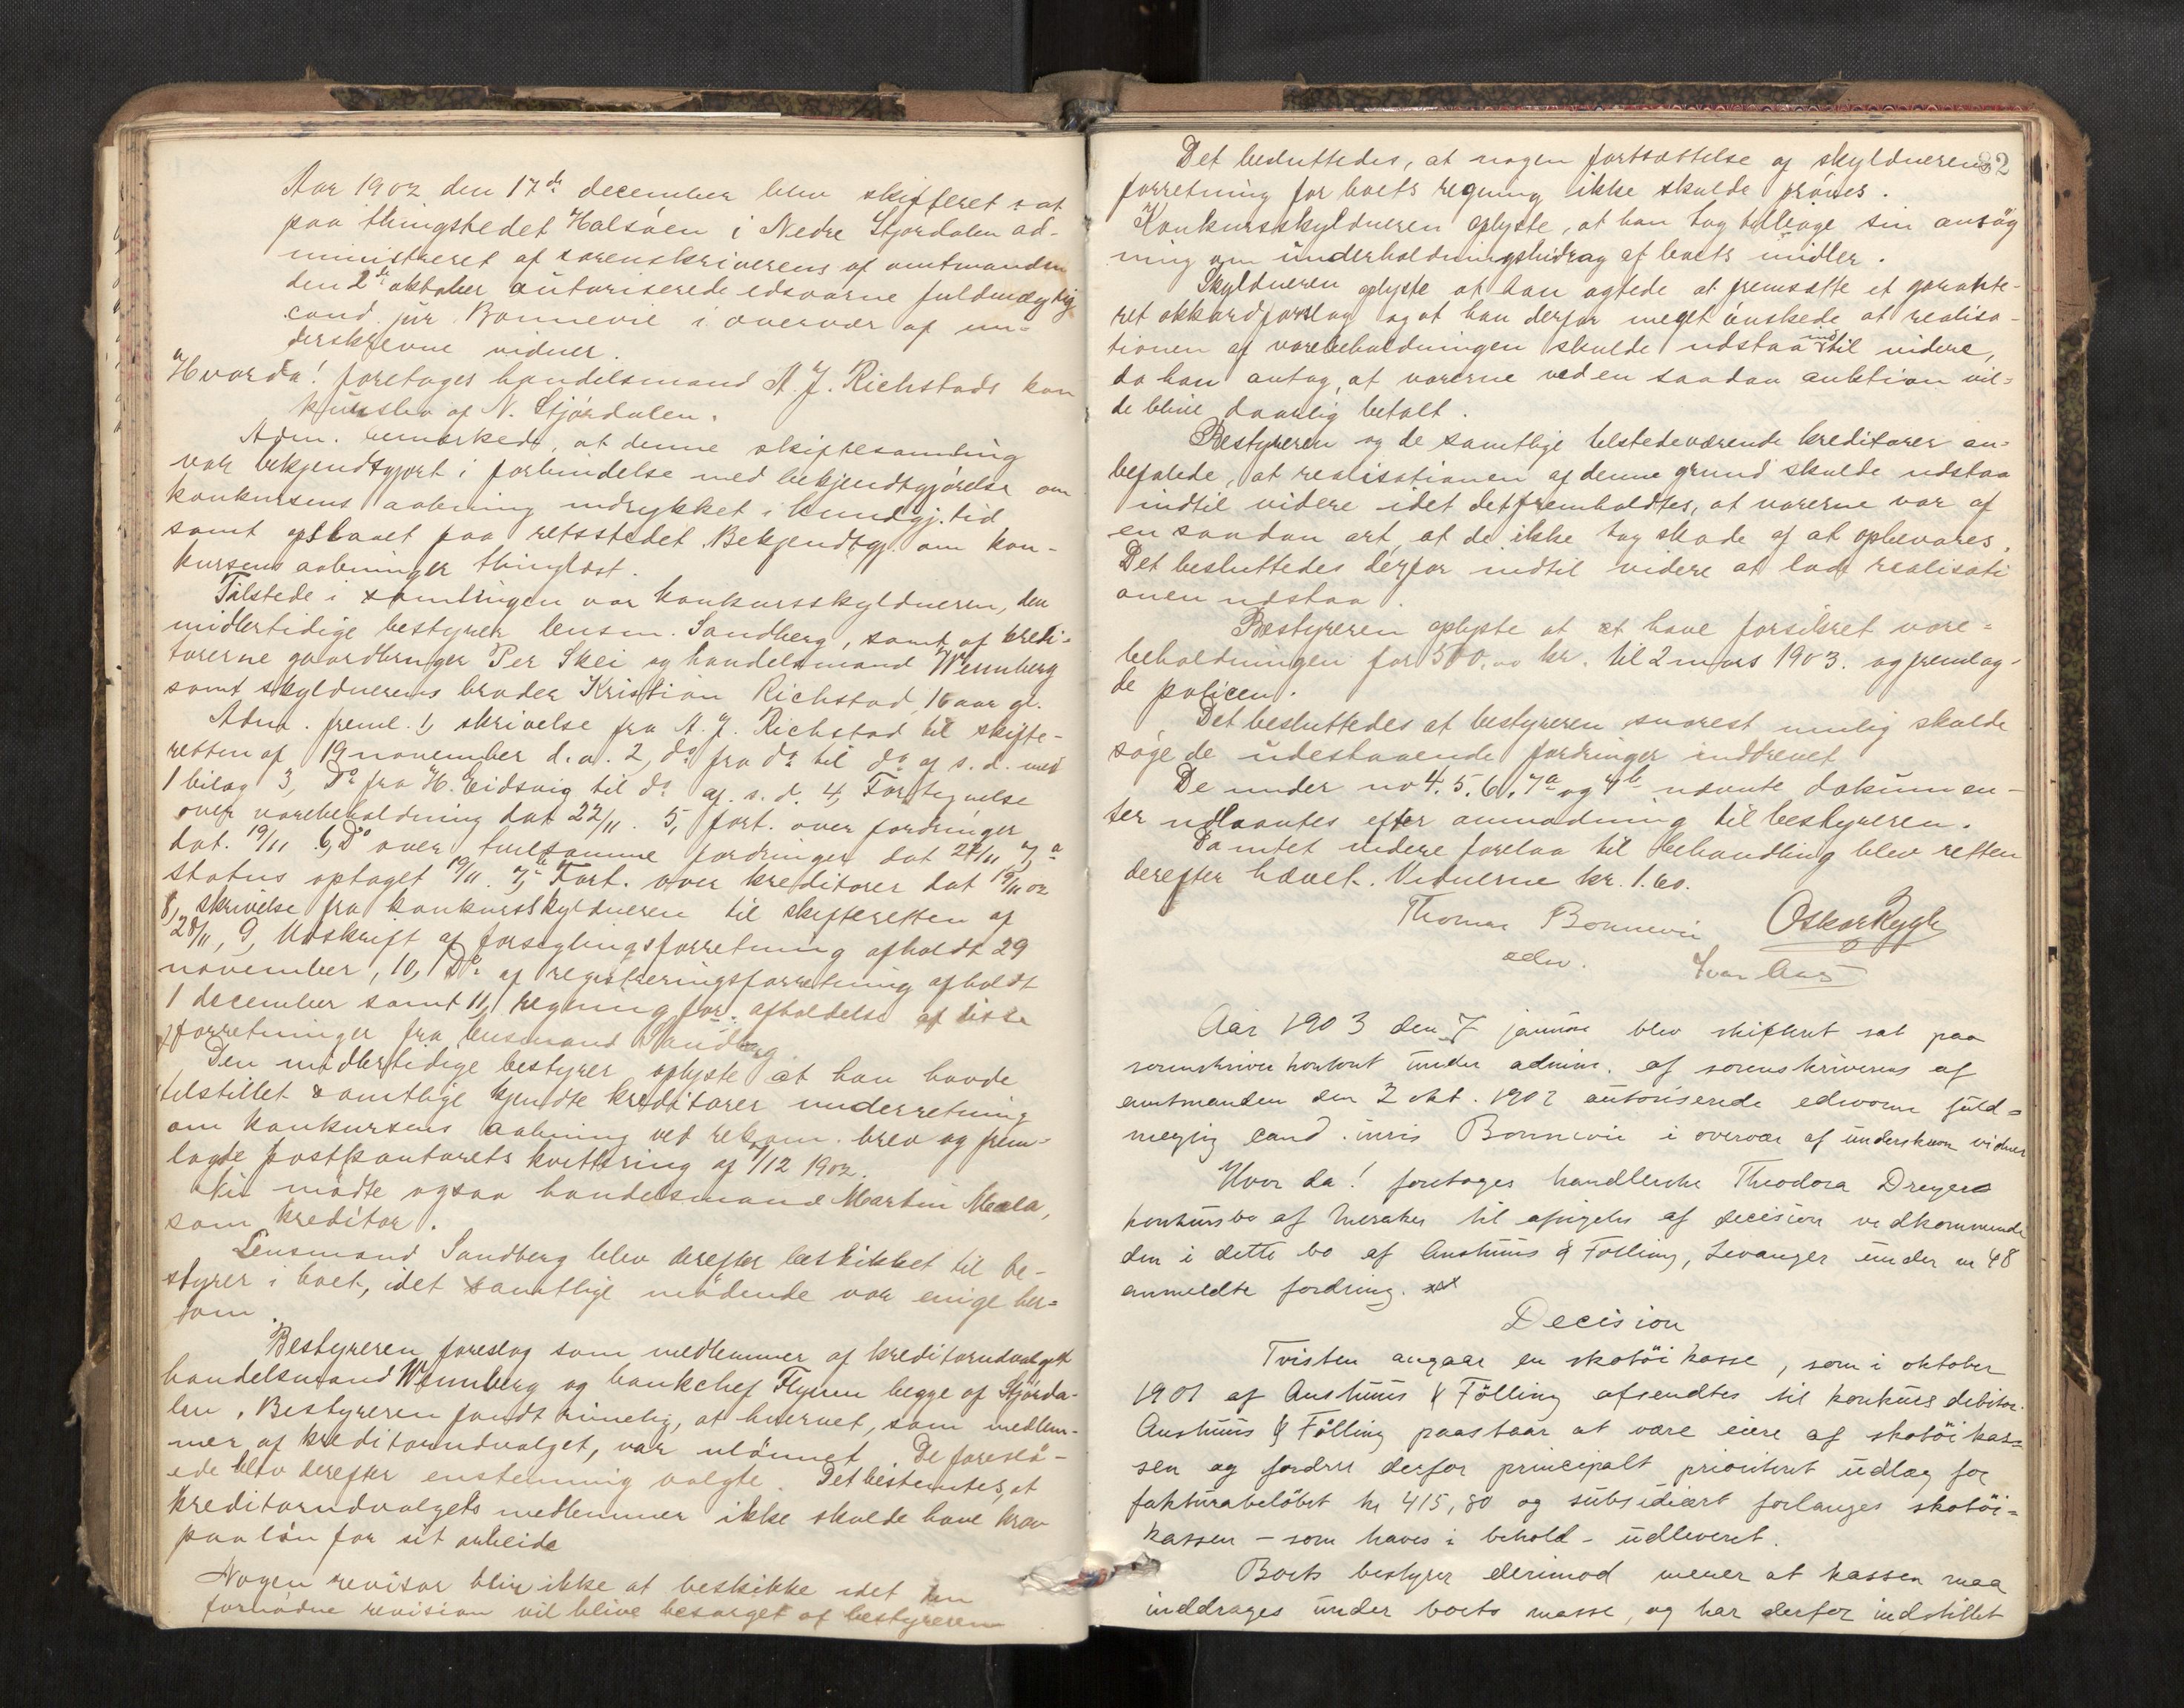 Aar 1902 den 17de december blev skifteret sat
paa thingstedet Halsöen i Nedre Stjørdalen ad-
ministreret af sorenskriverens af amtmanden
den 2de oktober autoriserede edsvorne fuldmægtig
cand. jur. Bonnevie i overvær af un-
derskrevne vidner.
Hvorda! foretages handelsmand A. J. Richstads kon
kursbo af N. Stjördalen.
Adm. bemærkede, at denne skiftesamling
var bekjendtgjort i forbindelse med bekjendtgjörelse om
konkursens aabning indrykket i kundgj.tid
samt opslaaet paa retsstedet. Bekjendtgj. om kon-
kursens aabninger thinglæst.
Tilstede i samlingen var konkursskyldneren, den
midlertidige bestyrer lensm. Sandberg, samt af kredi-
torerne gaardbruger Per Skei og handelsmand Wennberg
samt skyldnerens broder Kristian Richstad, 16 aar gl.
Adm. freml. 1, skrivelse fra A. J. Richstad til skifte-
retten af 19 november d. a. 2, do fra do til do af s. d. med
1 bilag 3, Do fra H. Eidsvig til do af s. d. 4, Fortegnelse
over varebeholdning dat 22/11. 5, fort. over fordringer
dat. 19/11 6, Do over tvilsomme fordringer dat 27/11 7, a
status optaget 19/11. 7, b Fort. over kreditorer dat 19/11 02
8, skrivelse fra konkursskyldneren til skifteretten af
28/11, 9, Udskrift af forseglingsforretning afholdt 29
november, 10, Do af registreringsforretning afholdt
1 december samt 11, regning for afholdelse af disse
forretninger fra lensmand Sandberg.
Den midlertidige bestyrer oplyste at han havde
tilstillet samtlige kjendte kreditorer underretning
om konkursens aabning ved rekom. brev og frem-
lagde postkontorets kvittering af 1/12 1902.
Nu mödte ogsaa handelsmand Martin Mæla,
som kreditor.
Lensmand Sandberg blev derefter beskikket til be-
styrer i boet, idet samtlige mödende var enige her-
om.
Bestyreren foreslog som medlemmer af kreditorudvalget
handelsmand Wennberg og bankchef Flyum begge af Stjörda-
len. Bestyreren fandt rimelig, at hvervet, som medlem-
mer af kreditorudvalget, var ulönnet. De foreslå-
ede blev derefter enstemmig valgte. Det bestemtes, at
kreditorudvalgets medlemmer ikke skulde have krav
paa lön for sit arbeide
Nogen revisor blir ikke at beskikke idet den
fornödne revision vil blive besörget af bestyreren
82
Det besluttedes, at nogen fortsættelse af skyldnerens
forretning for boets regning ikke skulde pröves.
Konkursskyldneren oplyste, at han tog tilbage sin ansög
ning om underholdningsbidrag af boets midler.
Skyldneren oplyste at han agtede at fremsætte et garante-
ret akkordforslag og at han derfor meget önskede at realisa-
tionen af varebeholdningen skulde udstaa indtil videre,
da han antog, at varerne ved en saadan auktion vil-
de blive daarlig betalt.
Bestyreren og de samtlige tilstedeværende kreditorer an-
befalede, at realisationen af denne grund skulde udstaa
indtil videre idet det fremholdtes, at varerne var af
en saadan art at de ikke tog skade af at opbevares.
Det besluttedes derfor indtil videre at lade realisati
onen udstaa.
Bestyreren oplyste at at have forsikret vare-
beholdningen for 500.00 kr. til 2 mars 1903. og fremlag-
de policen.
Det besluttedes at bestyreren snarest mulig skulde
söge de udestaaende fordringer inddrevet
De under no 4. 5. 6. 7a og 7b nævnte dokumen-
ter udlaantes efter anmodning til bestyreren.
Da intet videre forelaa til behandling blev retten
derefter hævet. Vidnerne kr. 1.60.
Thomas Bonnevie Oskar Rygh
edsv. Ivar Aas
Aar 1903 den 7 januar blev skifteret sat paa
sorenskriverkontoret under admin. af sorenskriverens af
amtmanden den 2 okt. 1902 autoriserede edsvorne fuld-
mægtig cand. juris Bonnevie i overvær af underskrevne vidner
Hvor da! foretages handlerske Theodora Dreyers
konkursbo af Meraker til afsigelse af decision vedkommende
den i dette bo af Austhuus & Fölling, Levanger under no 48
anmeldte fordring.
Decision
Tvisten angaar en skotöikasse, som i oktober
1901 af Austhuus & Fölling afsendtes til konkursdebitor.
Austhuus & Fölling paastaar at være eiere af skotöikas-
sen og fordrer derfor principalt prioriteret udlæg for
fakturabelöbet kr 415,80 og subsidiært forlanges skotöi-
kassen – som haves i behold – udleveret.
Boets bestyrer derimod mener at kassen maa
inddrages under boets masse, og har derfor indstillet